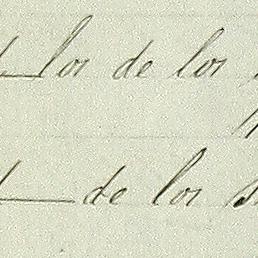 los de los
de los